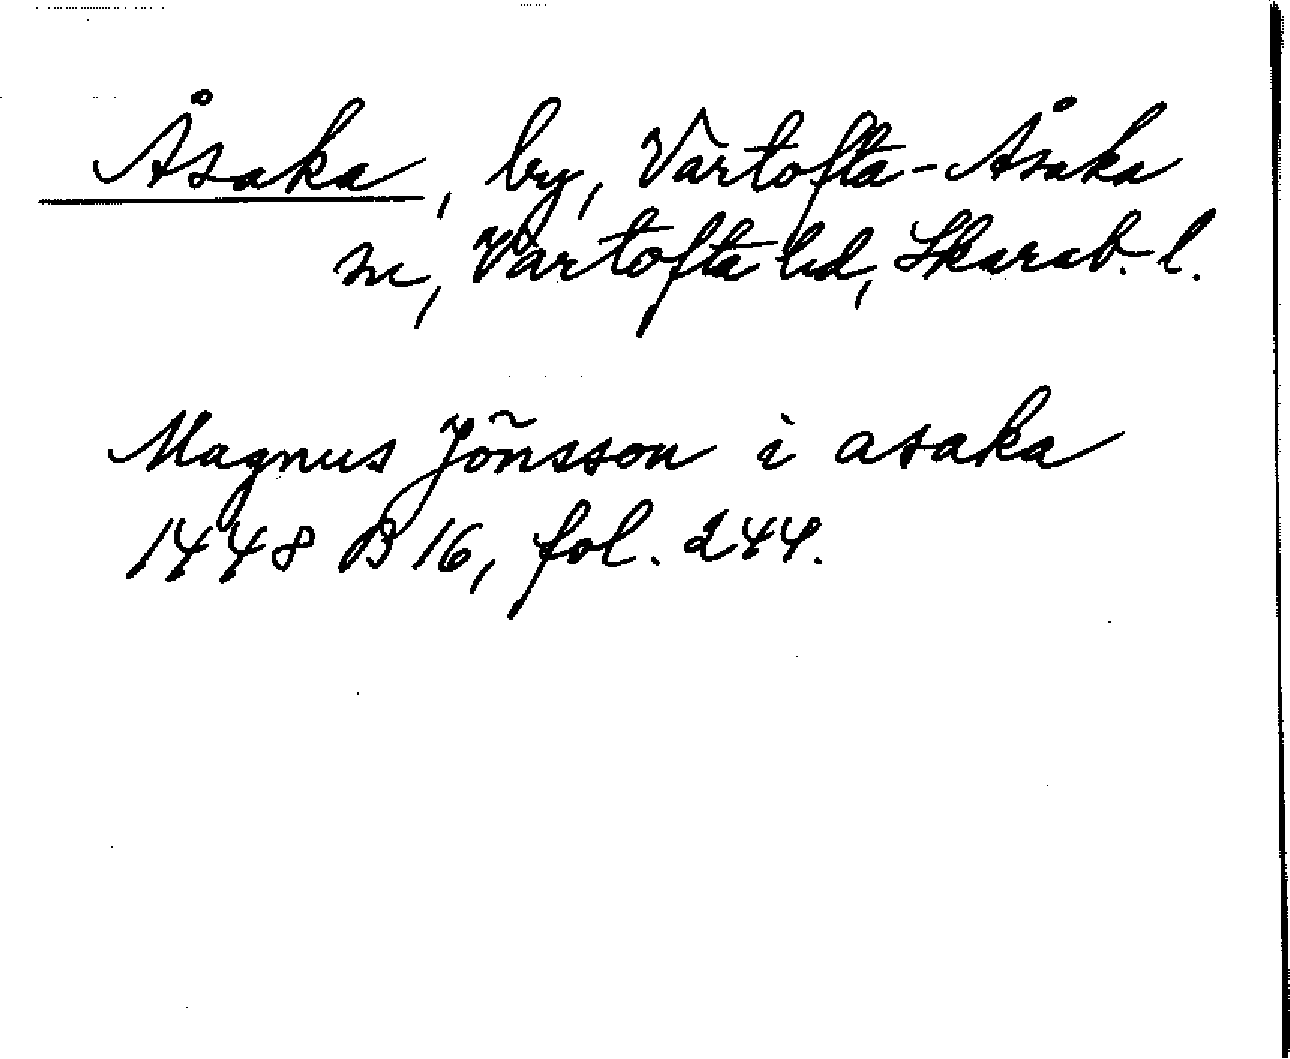 Åsaka, by, Vartofta-Åsaka
sn, Vartofta hd, Skarab. l.
Magnus Jõnsson i asaka
1448 B 16, fol. 244.